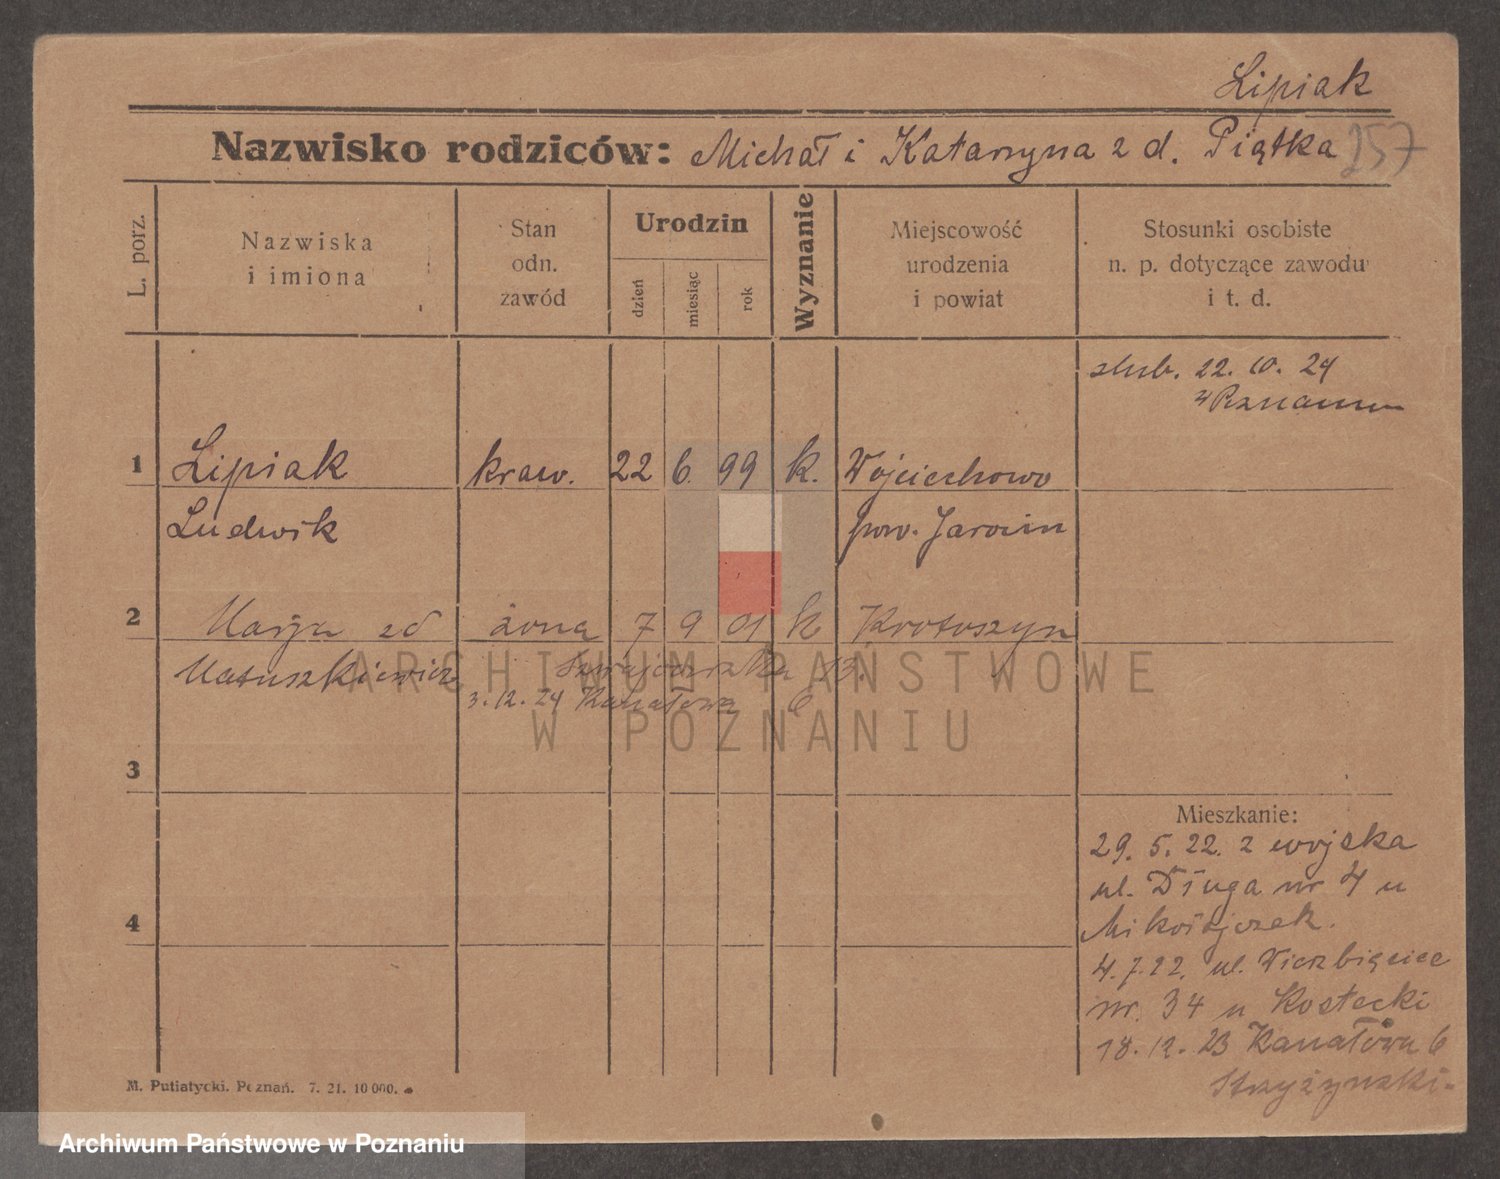 Lipiak
Nazwisko rodziców: Michał i Katarzyna z d. Piątka 257
L. porz.
Nazwiska
i imiona
Stan
odn.
zawód
Urodzin
dzień
miesiąc
rok
Wyznanie
Miejscowość
urodzenia
i powiat
Stosunki osobiste
n. p. dotyczące zawodu
i t. d.
ślub. 22. 10. 24
w Poznaniu
1 Lipiak kraw. 22 6. 99 k. Wojciechowo
Ludwik pow. Jarocin
2 Marja zd żona 7 9 01 k Krotoszyn
Matuszkiewicz 13.
3. 12. 24 Kanałowa 6
ARCHIWUM PAŃSTWOWE
W POZNANIU
3
Mieszkanie:
29. 5. 22. z wojska
ul. Długa nr 4 u
Mikołajczak.
4
4. 7. 22. ul. Wierzbięcice
nr. 34 u Kostecki
18. 12. 23 Kanałowa 6
Stryżyński.
M. Putiatycki. Poznań. 7. 21. 10 000.
Archiwum Państwowe w Poznaniu